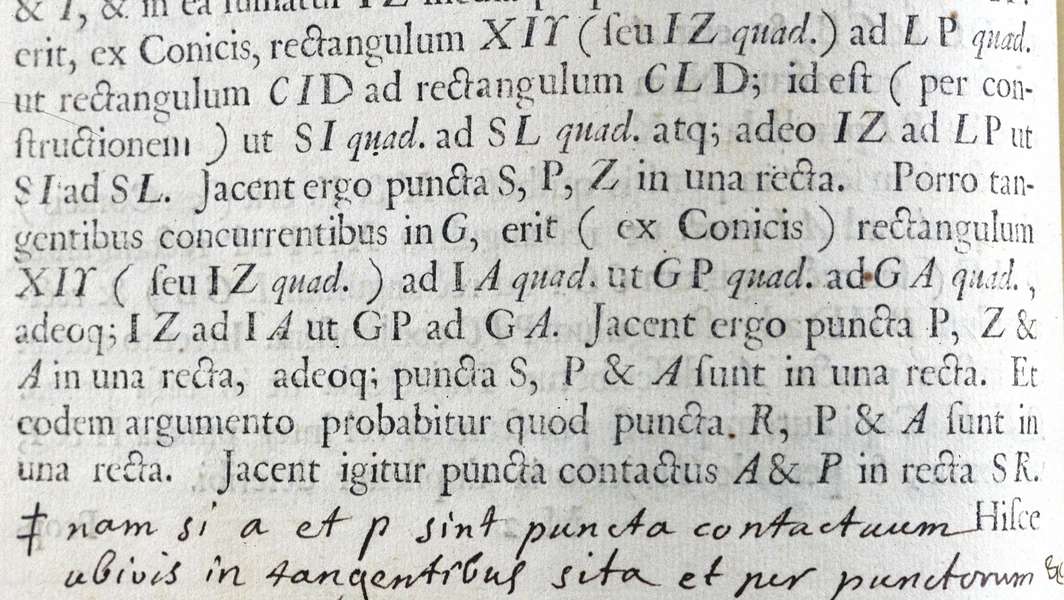 & I, & in ea sumatur IZ media
erit, ex Conicis, rectangulum XIY (ſeu IZ quad.) ad LP quad.
ut rectangulum CID ad rectangulum CLD; id eſt ( per con-
ſtructionem ) ut SI quad. ad SL quad. atq; adeo IZ ad LP ut
SI ad SL. Jacent ergo puncta S, P, Z in una recta. Porro tan-
gentibus concurrentibus in G, erit ( ex Conicis ) rectangulum
XIY ( ſeu IZ quad. ) ad IA quad. ut GP quad. ad GA quad.,
adeoq; IZ ad IA ut GP ad GA. Jacent ergo puncta P, Z &
A in una recta, adeoq; puncta S, P & A ſunt in una recta. Et
eodem argumento probabitur quod puncta R, P & A ſunt in
una recta. Jacent igitur puncta contactus A & P in recta SR.
Hiſce
‡ nam si a et p sint puncta contactuum
ubivis in tangentibus sita et per punctorum